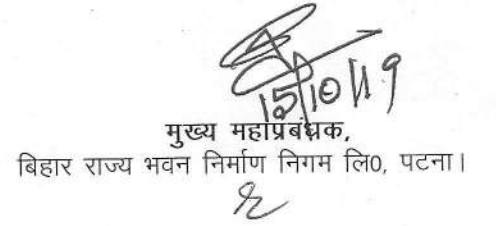 15/10/19
मुख्य महाप्रबंधक,
बिहार राज्य भवन निर्माण निगम लि0, पटना।